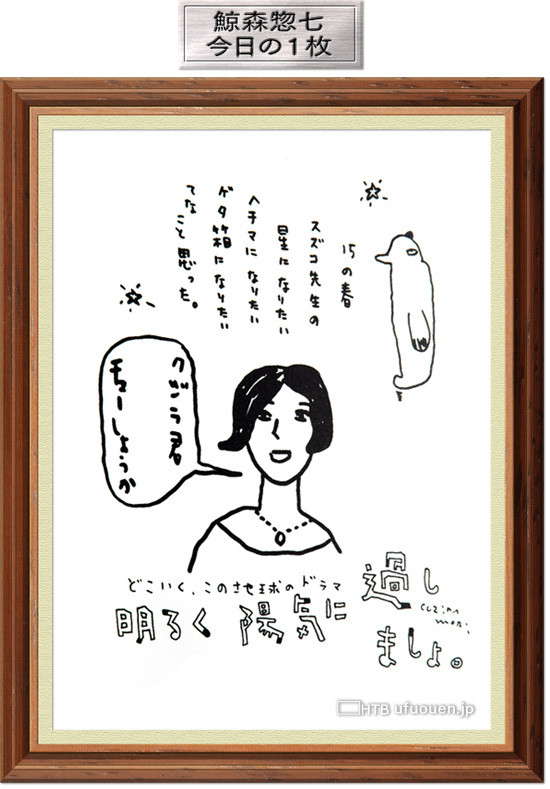 鯨森惣七
今日の1枚
15の春
スズコ先生の
星になりたい
ヘチマになりたい
ゲタ箱になりたい
てなこと思った。
クジラ君
チューしようか
どこいく、このさ地球のドラマ
明るく陽気に
過し
ましょ。
HTB ufuouen.jp